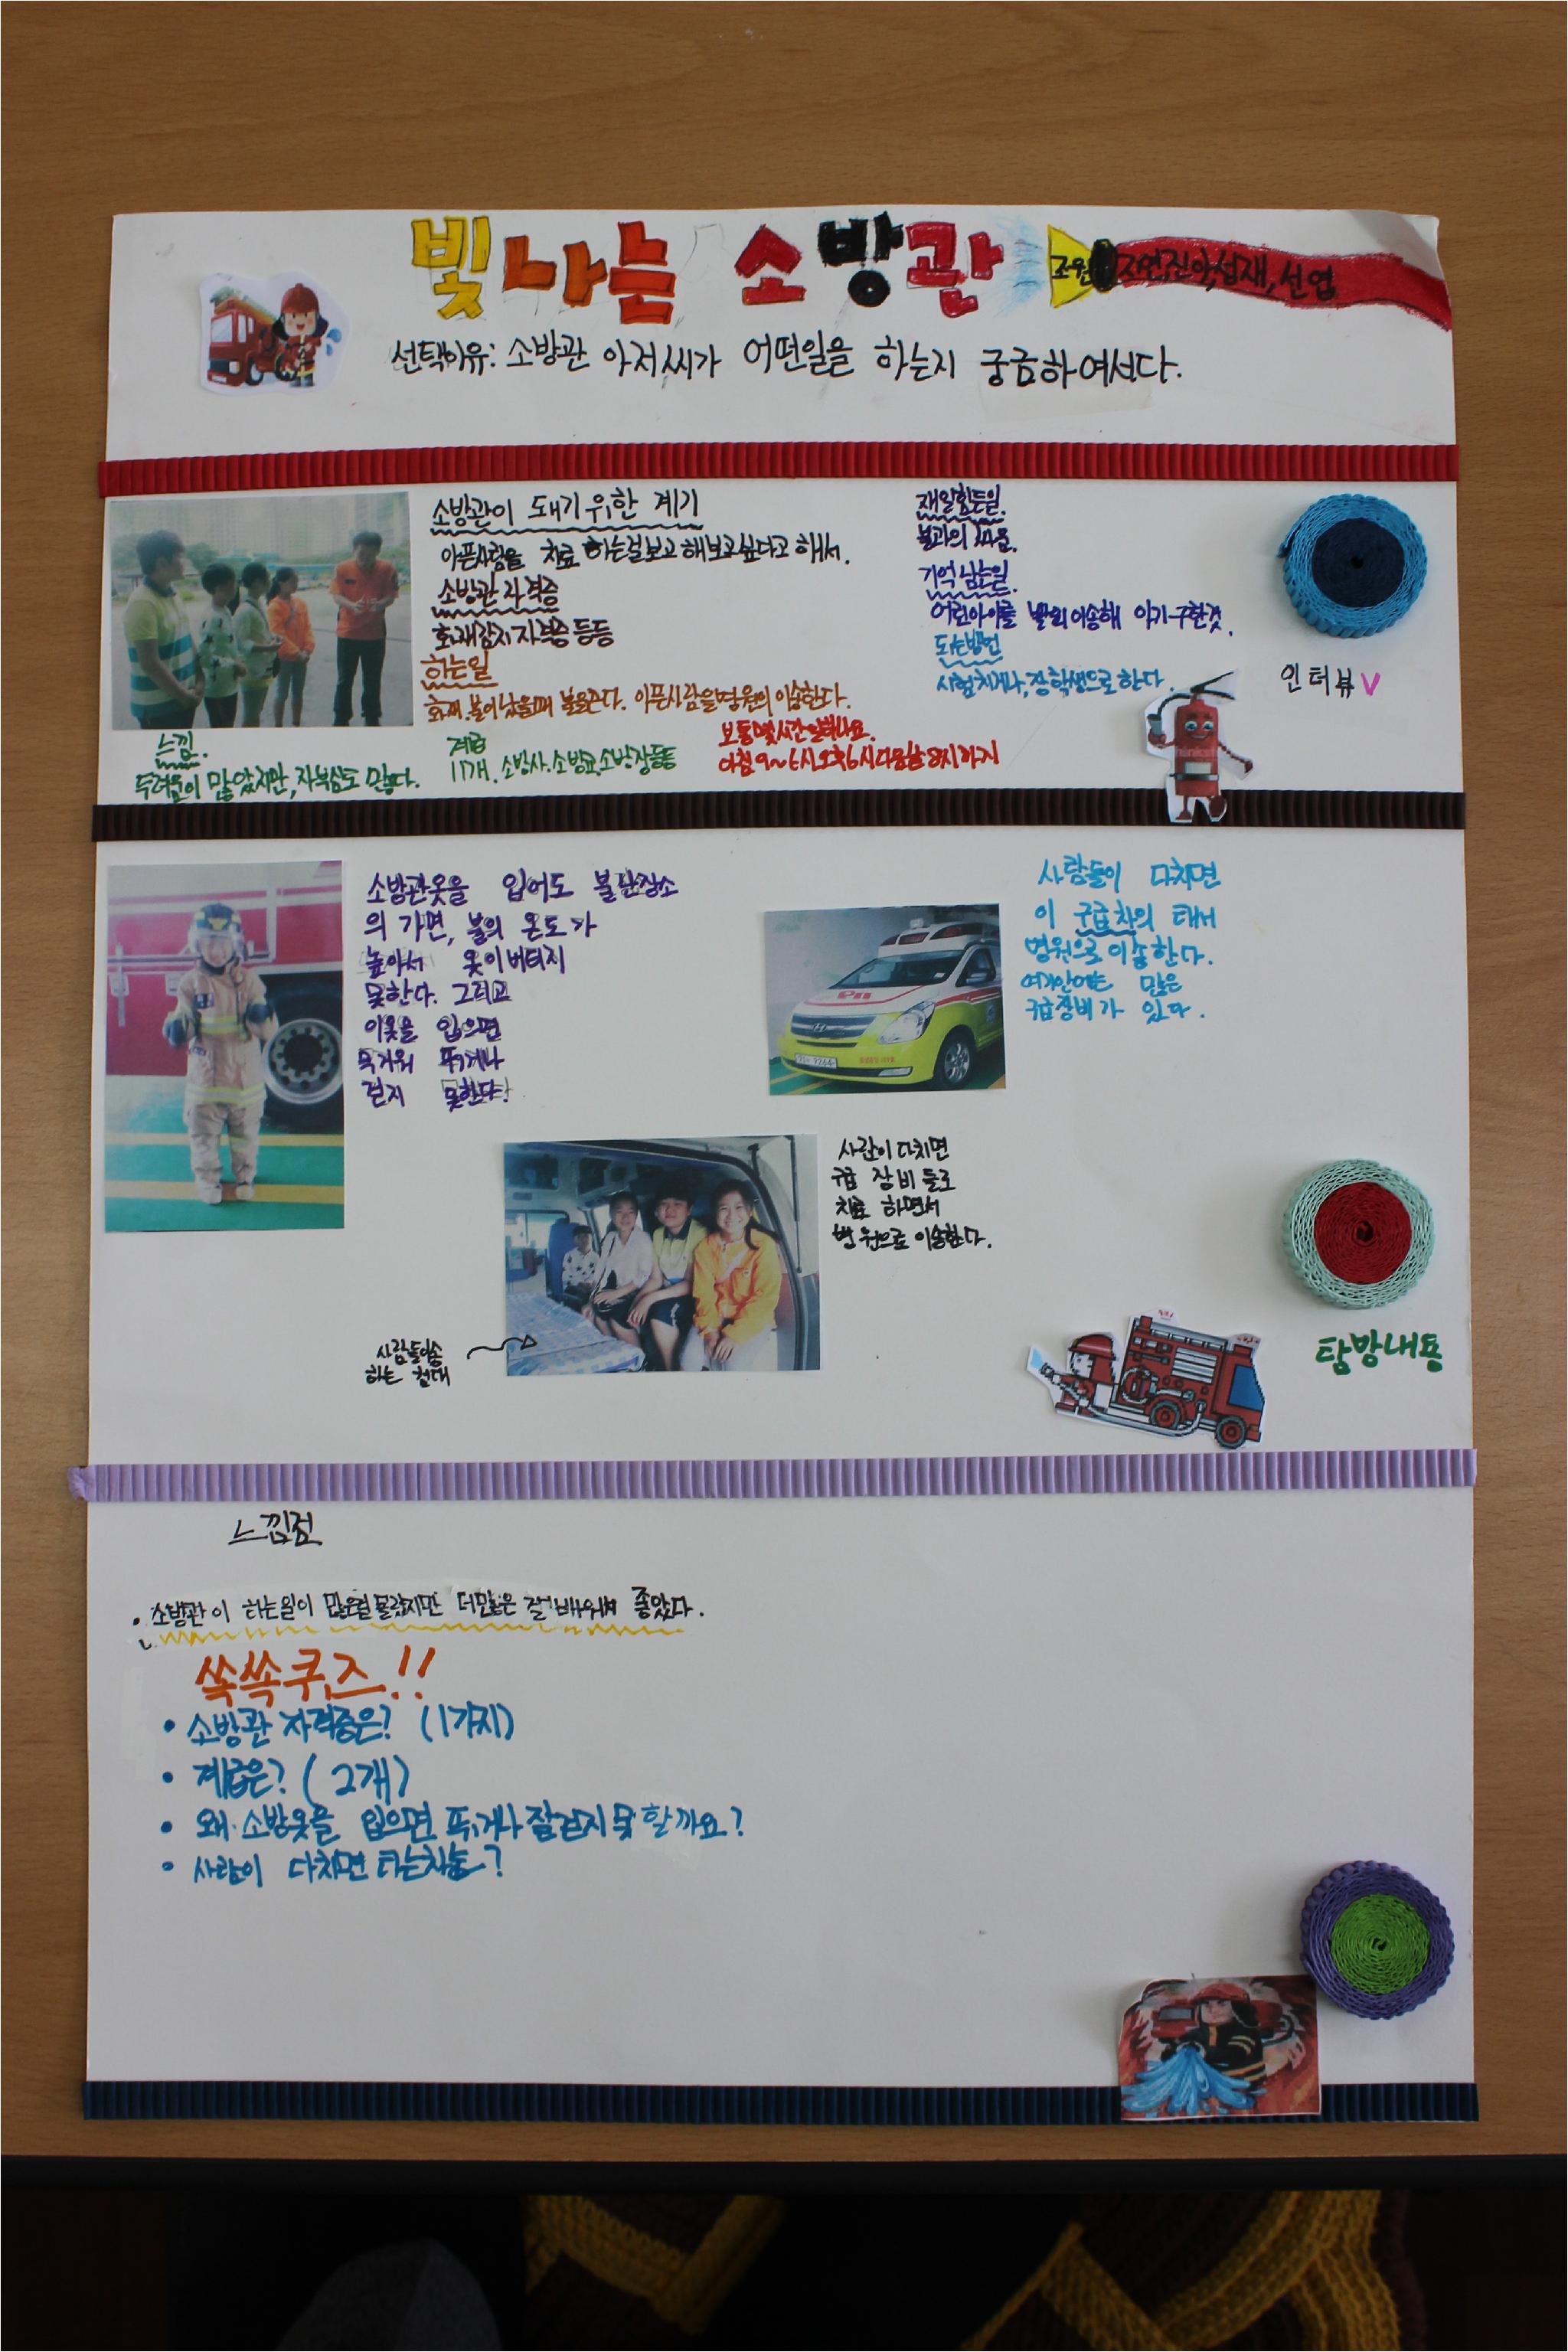 빛나는 소방관
조원
선택이유: 소방관 아저씨가 어떤일을 하는지 궁금하여서다.
소방관이 돼기 위한 계기
아픈사람을 치료 하는걸보고 해보고싶다고 해서.
소방관 자격증
화재감지 자격증 등등
하는일
화재.불이 났을때 불을끈다. 아픈사람을병원의 이송한다.
느낌.
두려움이 많았지만, 자부심도 많다.
계급
11개. 소방사.소방교.소방장등등
보통몇시간일하나요.
재일힘든일.
불과의 싸움.
기억 남는일.
어린아이를 빨리이송해 아기구한것.
되는방법
시험치거나, 장학생으로 한다.
인터뷰
소방관옷을 입어도 불난장소
의 가면, 불의 온도가
높아서 옷이버티지
못한다. 그리고
이옷을 입으면
무거워 뛰거나
걷지 못한다!
사람들이 다치면
이 구급차의 태서
병원으로 이송한다.
여기안에는 많은
구급장비가 있다.
119
사람이 다치면
구급 장비 들로
치료 하면서
병원으로 이송한다.
사람들이송
하는 침대
탐방내용
느낌점
• 소방관이 하는일이 많은걸몰랐지만 더많은 걸배워서 좋았다.
쏙쏙퀴즈!!
• 소방관 자격증은? (1가지)
• 계급은? (2개)
• 왜 소방옷을 입으면 뛰거나 잘걷지 못 할까요?
• 사람이 다치면 타는차는?